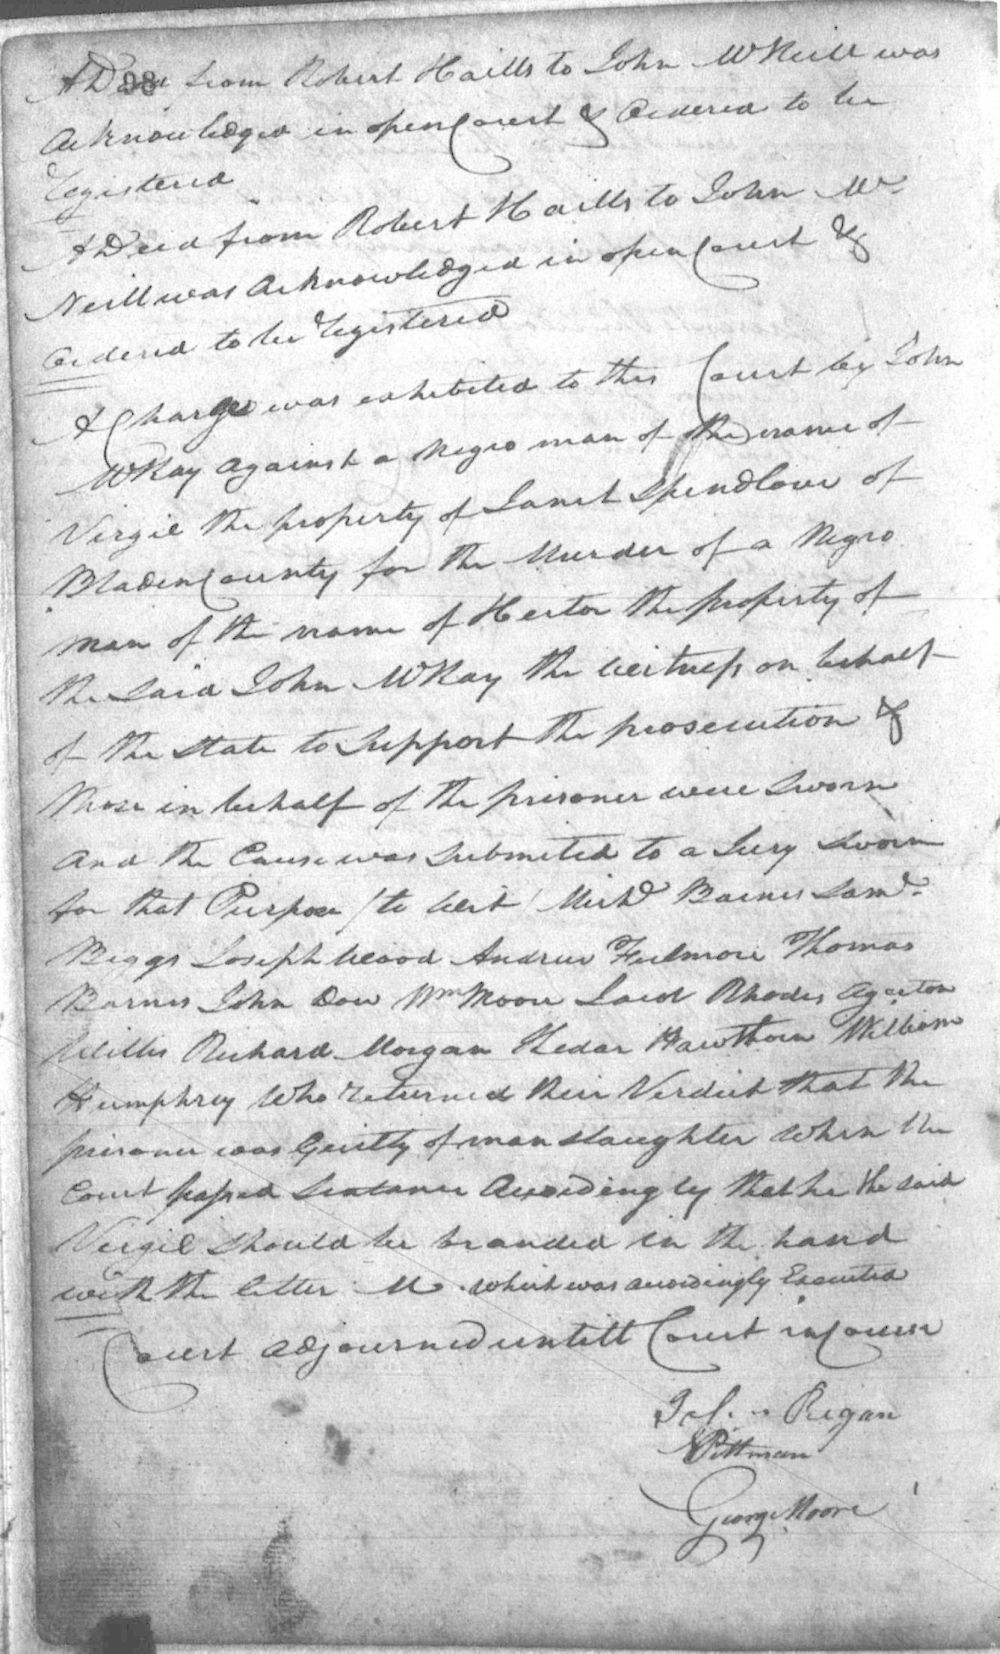 A Deed from Robert Haills to John McNeill was
Acknowledged in open Court & Ordered to be
Registered
A Deed from Robert Haills to John Mc
Neill was Acknowledged in open Court &
Ordered to be Registered
A Charge was exhibited to this Court by John
McKay against a Negro man of the name of
Virgil the property of Janet Spendlove of
Bladen County for the Murder of a Negro
man of the name of Hector the property of
the said John McKay the witness on behalf
of the State to Support the prosecution &
those in behalf of the prisoner were Sworn
And the Cause was Submited to a Jury Sworn
for that Purpose (to wit) Michd Barnes Saml
Biggs Joseph Wood Andrew Fulmore Thomas
Barnes John Dow Wm Moore Jacob Rhodes Agerton
Willis Richard Morgan Kedar Hawthorn William
Humphrey Who returned their Verdict that the
prisoner was Guilty of manslaughter when the
Court passed Sentance Accordingly that he the said
Virgil Should be branded in the hand
with the letter M. which was accordingly Executed
Court adjourned untill Court in Course
Regan
Pittman
George Moore